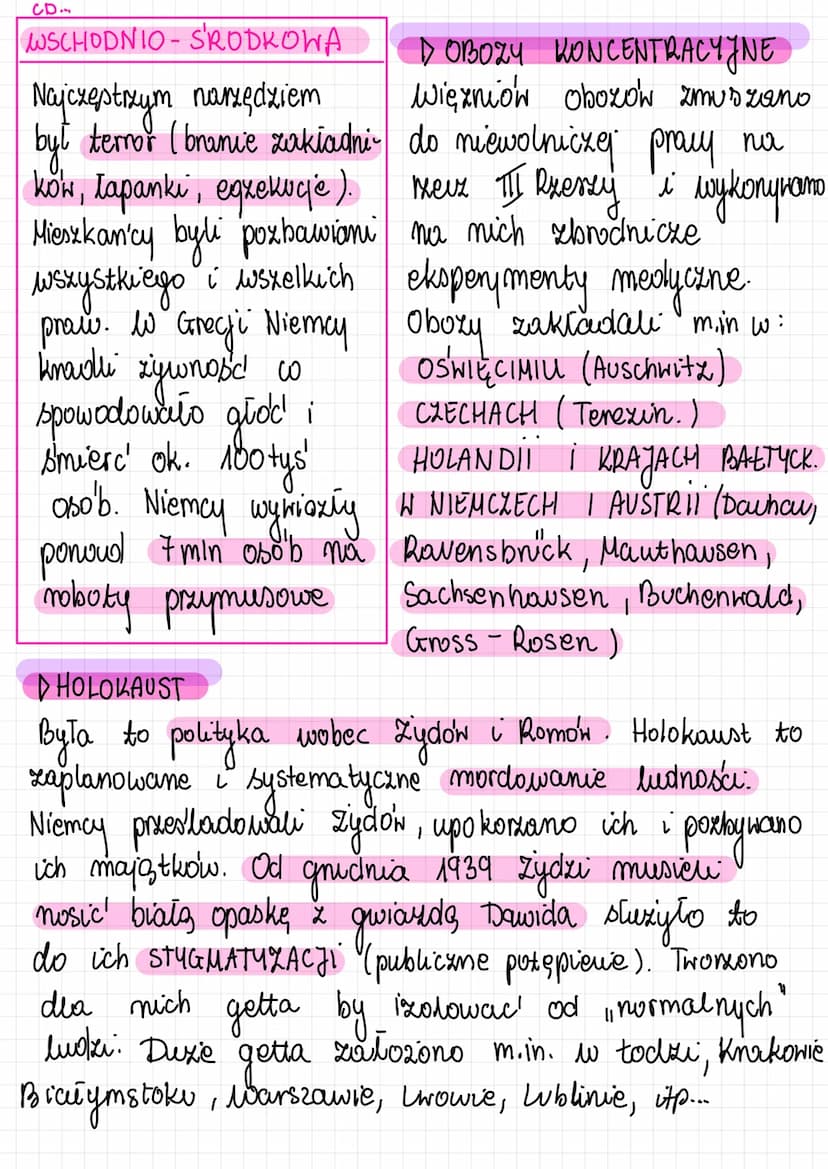 CD...
WSCHODNIO - ŚRODKOWA
Najczęstrzym narzędziem
był terror (branie zakładni-
ków, łapanki, egzekucje).
Mieszkańcy byli pozbawiani
wszystkiego i wszelkich
praw. W Grecji Niemcy
kradli żywność co
spowodowało głód i
śmierć ok. 100 tyś
osób. Niemcy wywiozły
ponad 7 mln osób na
roboty przymusowe
▷ OBOZY KONCENTRACYJNE
Więzniów obozów zmuszano
do niewolniczej pracy na
rzecz III Rzeszy i wykonywano
na nich zbrodnicze
eksperymenty medyczne.
Obozy zakładali m.in w:
OŚWIĘCIMIU (Auschwitz)
CZECHACH (Terezin.)
HOLANDII i KRAJACH BAŁTYCK.
W NIEMCZECH I AUSTRII (Dachau,
Ravensbrück, Mauthausen,
Sachsenhausen, Buchenwald,
Gross - Rosen)
▷ HOLOKAUST
Była to polityka wobec Żydów i Romów. Holokaust to
zaplanowane i systematyczne mordowanie ludności.
Niemcy prześladowali Żydów, upokorzano ich i pozbywano
ich majątków. Od grudnia 1939 Żydzi musieli
nosić białą opaskę z gwiazdą Dawida służyło to
do ich STYGMATYZACJI (publiczne potępienie). Tworzono
dla nich getta by izolować od „normalnych"
ludzi. Duże getta założono m.in. w Łodzi, Krakowie
Białymstoku, Warszawie, Lwowie, Lublinie, itp...